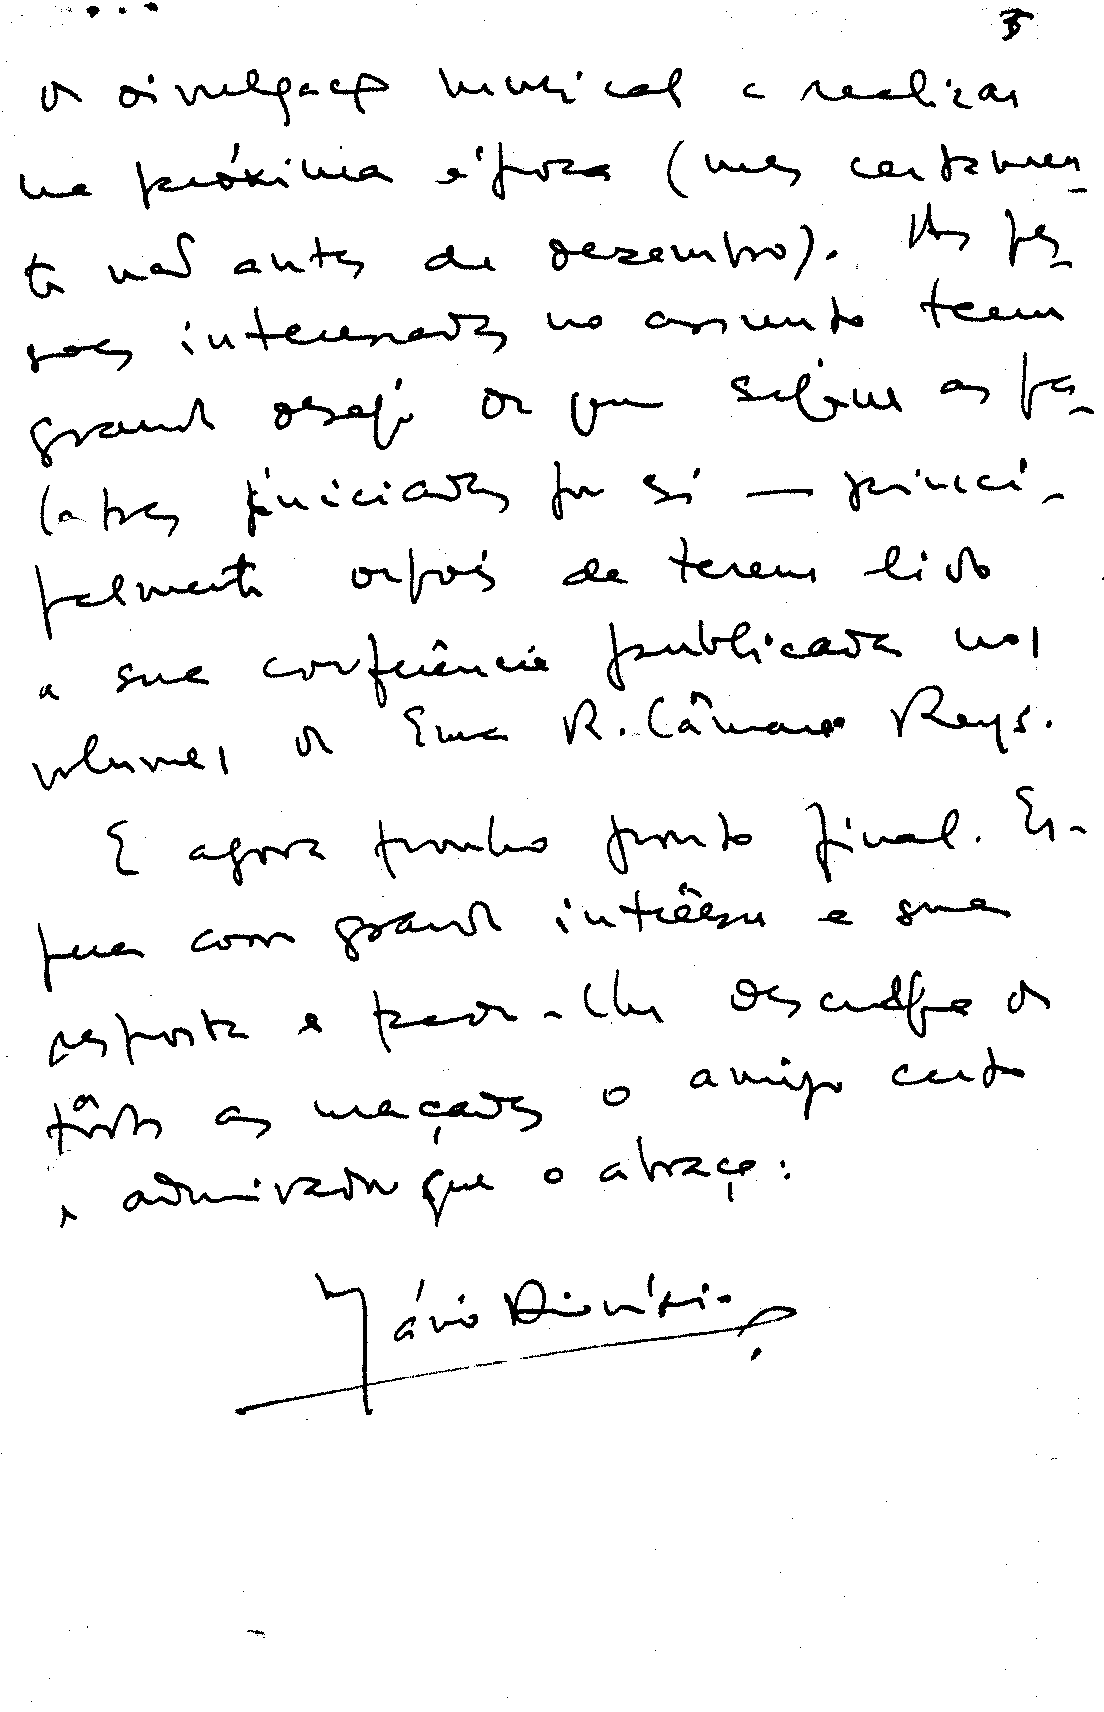 3
de divulgação musical a realizar
na próxima época (mas certamen-
te não antes de dezembro). As pes-
soas interessadas no assunto teem
grande desejo de que sejam as pa-
lestras iniciadas por si — princi-
palmente depois de terem lido
a sua conferência publicada nos
volumes de Ema R. Câmara Reys.
E agora ponho ponto final. Es-
pera com grande interêsse a sua
resposta e pede-lhe desculpa de
tôdas as maçadas o amigo certo
e admirador que o abraça:
Mário Dionísio